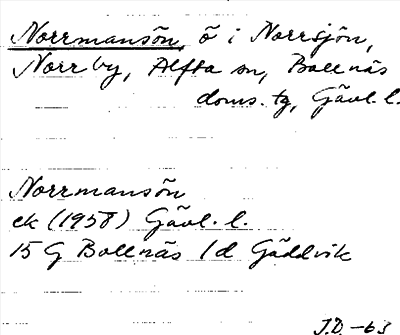 Norrmansön, ö i Norrsjön,
Norrby, Alfta sn, Bollnäs
doms. tg, Gävl. l.
Norrmansön
ek (1958) Gävl. l.
15 G Bollnäs 1 d Gäddvik
J.D. -63